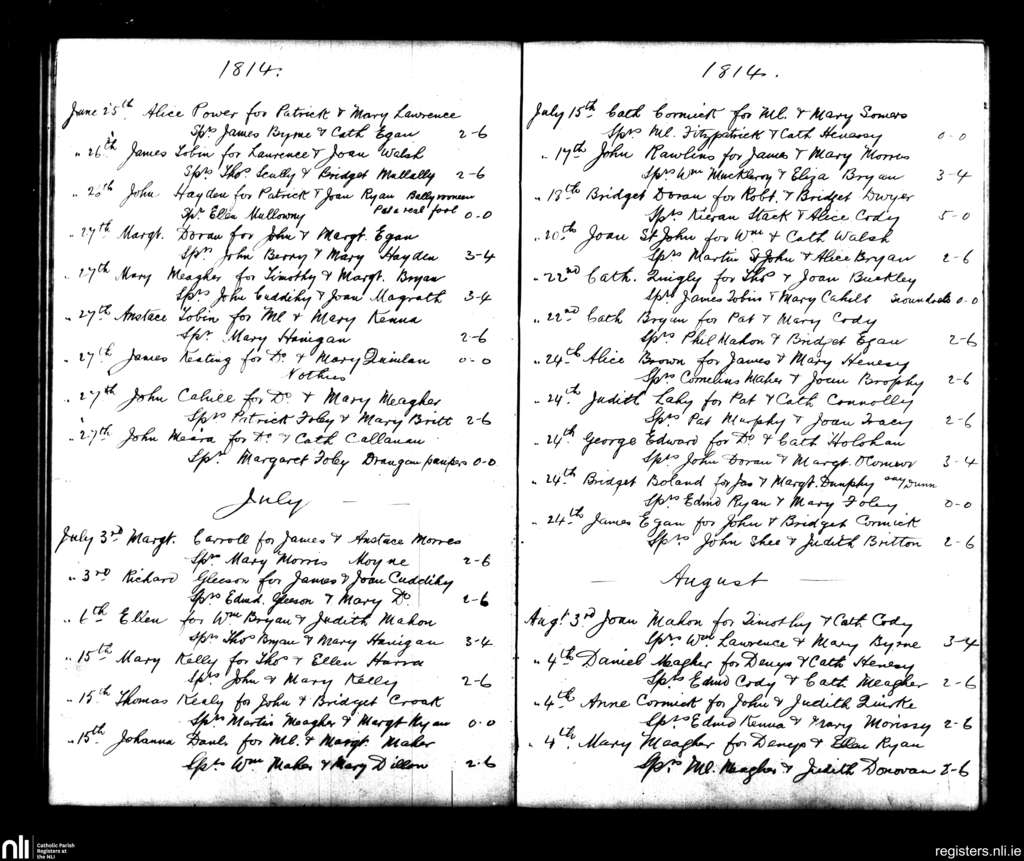 1814.
June 25th Alice Power for Patrick & Mary Lawrence
Sprs James Byrne & Cath Egan 2-6
" 26th James Tobin for Laurence & Joan Walsh
Sprs Thos Scully & Bridget Mullally 2-6
" 26th John Hayden for Patrick & Joan Ryan
Spr Ellen Mullowny Pat a real fool 0-0
" 27th Margt. Doran for John & Margt. Egan
Sprs John Berry & Mary Hayden 3-4
" 27th Mary Meagher for Timothy & Margt. Bryan
Sprs John Cuddihy & Joan Magrath 3-4
" 27th Anstace Tobin for Ml & Mary Kenna
Spr Mary Hanigan 2-6
" 27th James Keating for Do. & Mary Quinlan 0-0
Nothing
" 27th John Cahill for Do. & Mary Meagher
Sprs Patrick Foley & Mary Britt 2-6
" 27th John Meara for Do. & Cath Callanan
Spr Margaret Foley Drangan paupers 0-0
July
July 3rd Margt. Carroll for James & Anstace Morres
Spr Mary Morris Moyne 2-6
" 3rd Richard Gleeson for James & Joan Cuddihy
Sprs Edmd. Gleeson & Mary Do. 2-6
" 6th Ellen for Wm Bryan & Judith Mahon
Sprs Thos Bryan & Mary Hanigan 3-4
" 15th Mary Kelly for Thos & Ellen Harra
Sprs John & Mary Kelly 2-6
" 15th Thomas Kealy for John & Bridget Croak
Sprs Martin Meagher & Margt Ryan 0-0
" 15th Johanna for Ml. & Margt. Maher
Sprs Wm Maher & Mary Dillon 2-6
1814.
July 15th Cath Cormick for Ml. & Mary Somers
Sprs Ml. Fitzpatrick & Cath Henessy 0-0
" 17th John Rawlins for James & Mary Morres
Sprs Wm Muckleroy & Eliza Bryan 3-4
" 18th Bridget Doran for Robt. & Bridget Dwyer
Sprs Kieran Stack & Alice Cody 5-0
" 20th Joan St John for Wm & Cath Walsh
Sprs Martin St John & Alice Bryan 2-6
" 22nd Cath. Quigly for Thos & Joan Buckley
Sprs James Tobin & Mary Cahill Scoundrels 0-0
" 22nd Cath Bryan for Pat & Mary Cody
Sprs Phil Mahon & Bridget Egan 2-6
" 24th Alice Brown for James & Mary Henesy
Sprs Cornelius Maher & Joan Brophy 2-6
" 24th Judith Lahy for Pat & Cath Connolly
Sprs Pat Murphy & Joan Tracy 2-6
" 24th George Edward for Do. & Cath Holohan
Sprs John Doran & Margt. 3-4
" 24th Bridget Boland for Jas & Margt. Dunphy say Dunn
Sprs Edmd Ryan & Mary Foley 0-0
" 24th James Egan for John & Bridget Cormick
Sprs John Shee & Judith Britton 2-6
August
Augt 3rd Joan Mahon for Timothy & Cath Cody
Sprs Wm Lawrence & Mary Byrne 3-4
" 4th Daniel Meagher for Denys & Cath Henesy
Sprs Edmd Cody & Cath Meagher 2-6
" 4th Anne Cormick for John & Judith Quirke
Sprs Edmd Kenna & Mary Morissy 2-6
" 4th Mary Meagher for Denys & Ellen Ryan
Sprs Ml. Meagher & Judith Donovan 2-6
nli
Catholic Parish
Registers at
the NLI
registers.nli.ie